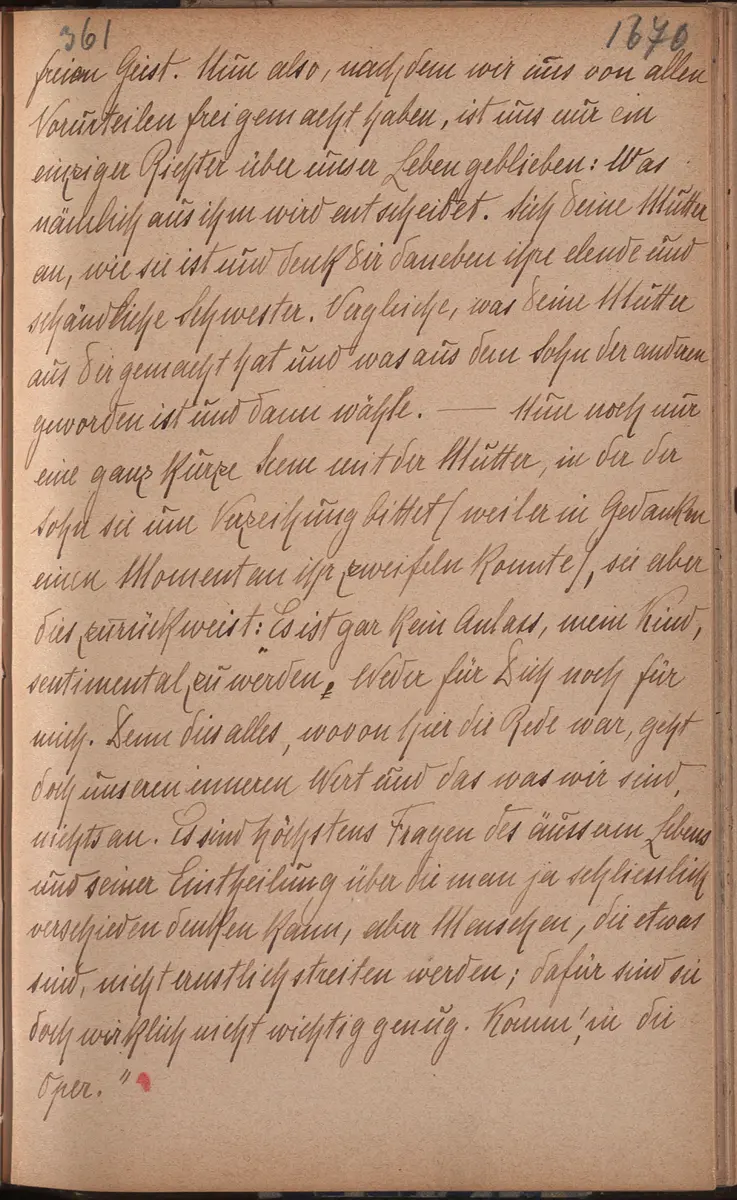 361 1670
freien Geist. Nun also, nachdem wir uns von allen
Vorurteilen freigemacht haben, ist uns nur ein
einziger Richter über unser Leben geblieben: Was
nämlich aus ihm wird entscheidet. Sieh deine Mutter
an, wie sie ist und denk dir daneben ihre elende und
schändliche Schwester. Vergleiche, was deine Mutter
aus dir gemacht hat und was aus dem Sohn der anderen
geworden ist und dann wähle. — Nun noch nur
eine ganz kurze Scene mit der Mutter, in der der
Sohn sie um Verzeihung bittet (weil er in Gedanken
einen Moment an ihr zweifeln konnte), sie aber
dies zurückweist: Es ist gar kein Anlass, mein Kind,
sentimental zu werden. Weder für Dich noch für
mich. Denn dies alles, wovon hier die Rede war, geht
doch unseren inneren Wert und das was wir sind,
nichts an. Es sind höchstens Fragen des äussern Lebens
und seiner Eintheilung über die man ja schliesslich
verschieden denken kann, aber Menschen, die etwas
sind, nicht ernstlich streiten werden; dafür sind sie
doch wirklich nicht wichtig genug. Komm', in die
Oper."